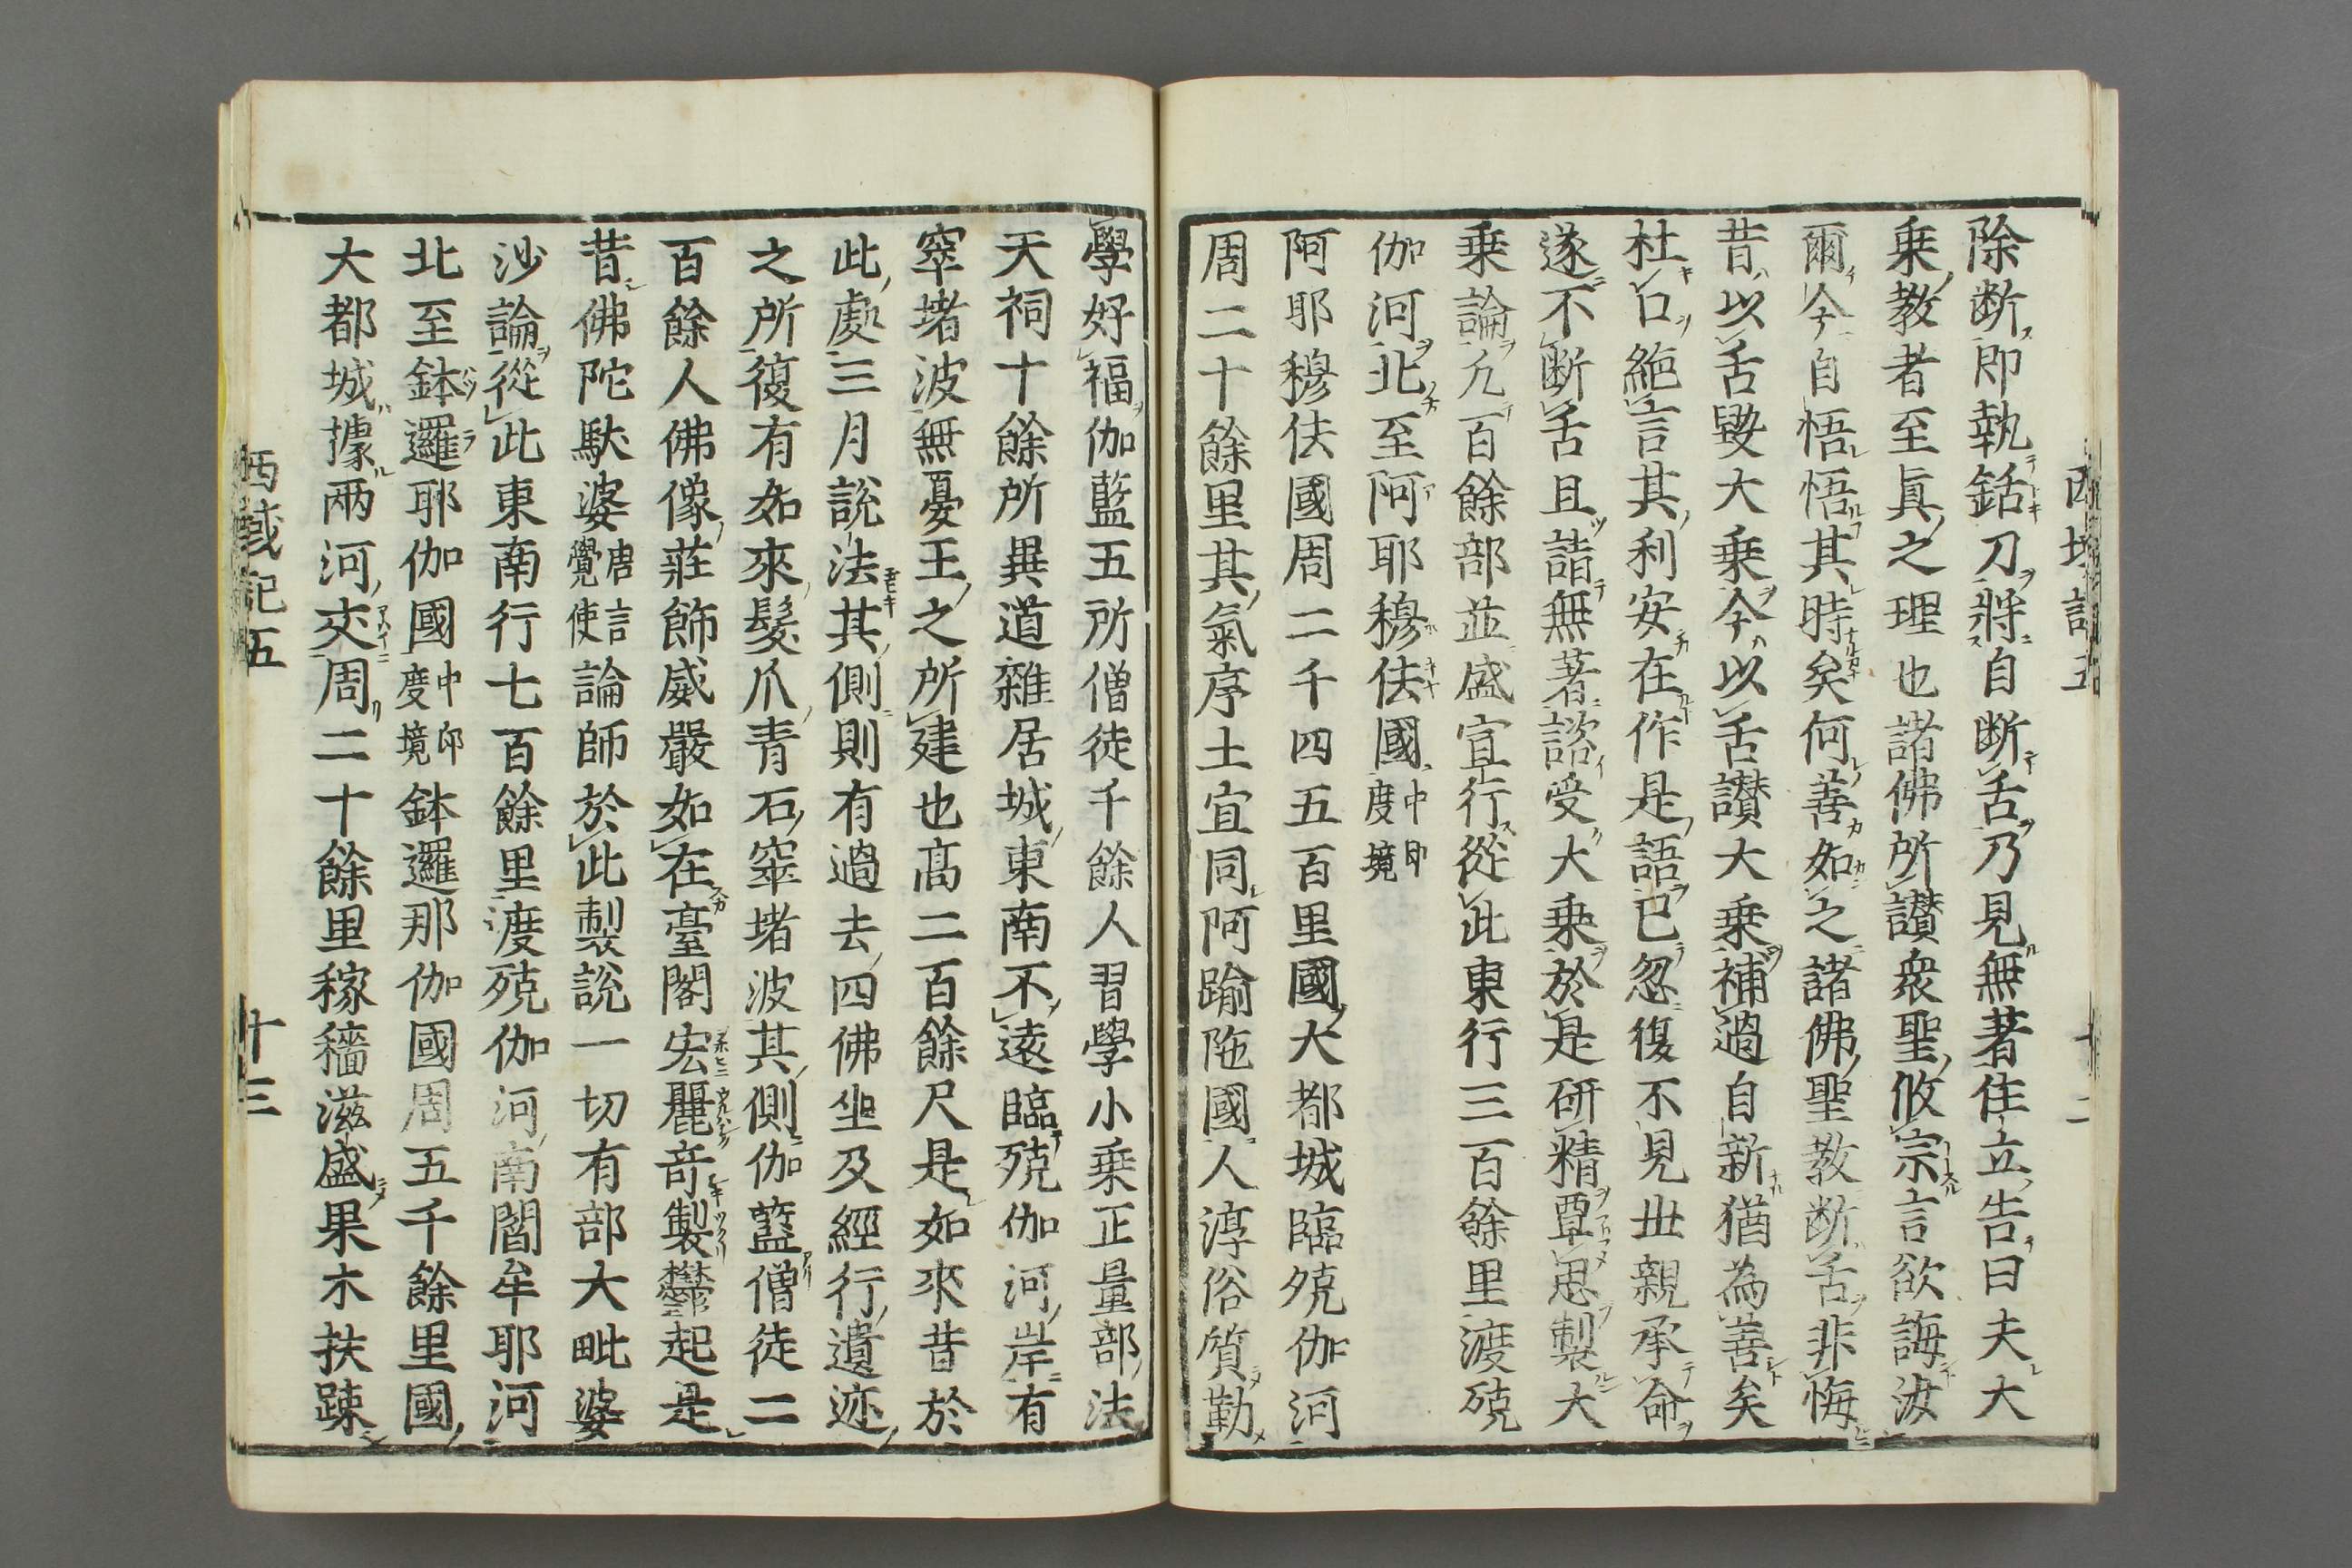 西域記五 十二
除断即執銛刀將自断舌乃見無著住立告曰夫大
乗教者至眞之理也諸佛所讃衆聖攸宗言欲誨汝
爾今自悟悟其時矣何善如之諸佛聖教断舌非悔
昔以舌毀大乗今以舌讃大乗補過自新猶為善矣
杜口絶言其利安在作是語已忽復不見丗親承命
遂不断舌且詣無著諮受大乗於是研精覃思製大
乗論凢百餘部並盛宣行從此東行三百餘里渡殑
伽河北至阿耶穆佉國中印度境
阿耶穆佉國周二千四五百里國大都城臨殑伽河
周二十餘里其氣序土宜同阿踰陁國人淳俗質勤
學好福伽藍五所僧徒千餘人習學小乗正量部法
天祠十餘所異道雜居城東南不遠臨殑伽河岸有
窣堵波無憂王之所建也髙二百餘尺是如來昔於
此處三月說法其側則有過去四佛坐及經行遺迹
之所復有如來髮爪青石窣堵波其側伽藍僧徒二
百餘人佛像莊飾威嚴如在臺閣宏麗竒製欝起是
昔佛陀馱婆唐言覺使論師於此製說一切有部大毗婆
沙論從此東南行七百餘里渡殑伽河南閻牟耶河
北至鉢邏耶伽國中印度境鉢邏那伽國周五千餘里國
大都城據兩河交周二十餘里稼穡滋盛果木扶踈
西域記五 十三